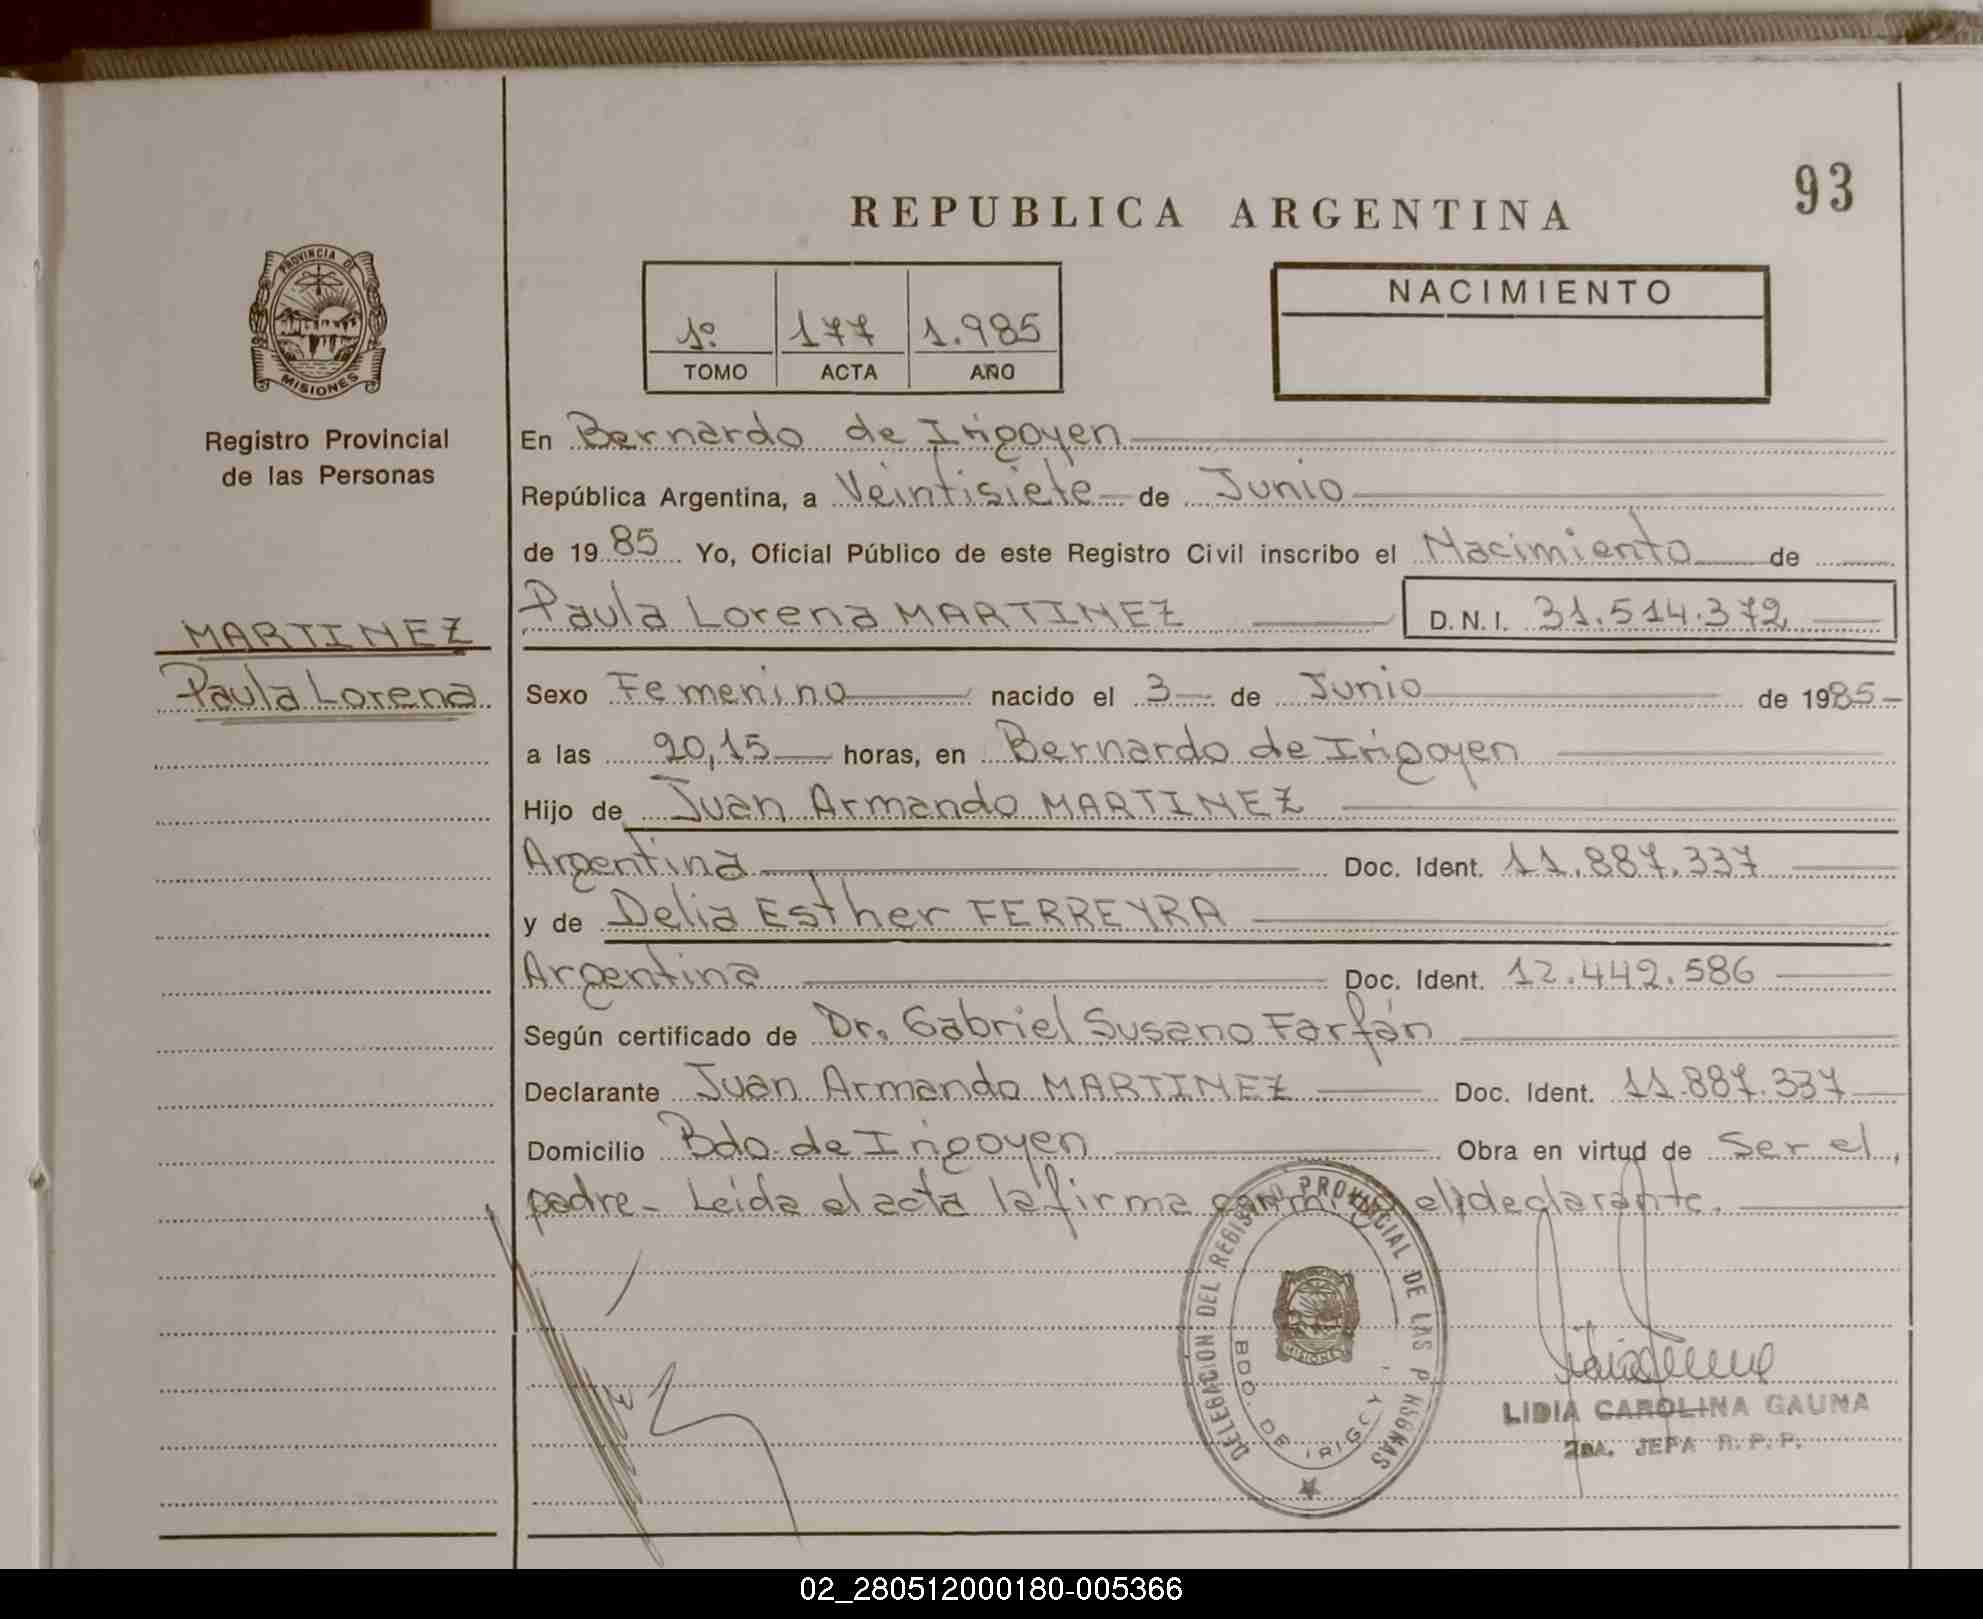 93
REPUBLICA ARGENTINA
PROVINCIA DE
MISIONES
1º 177 1.985
TOMO ACTA AÑO
NACIMIENTO
Registro Provincial
de las Personas
MARTINEZ
Paula Lorena
En Bernardo de Irigoyen
República Argentina, a Veintisiete de Junio
de 1985 Yo, Oficial Público de este Registro Civil inscribo el Nacimiento de
Paula Lorena MARTINEZ D.N.I. 31.514.372
Sexo Femenino nacido el 3 de Junio de 1985-
a las 20,15 horas, en Bernardo de Irigoyen
Hijo de Juan Armando MARTINEZ
Argentina Doc. Ident. 11.887.337
y de Delia Esther FERREYRA
Argentina Doc. Ident. 12.442.586
Según certificado de Dr. Gabriel Susano Farfán
Declarante Juan Armando MARTINEZ Doc. Ident. 11.887.337
Domicilio Bdo. de Irigoyen Obra en virtud de Ser el
padre- Leída el acta la firma conmigo el declarante.
DELEGACION DEL REGISTRO PROVINCIAL DE LAS P RSONAS
BDO. DE IRIGOY
MISIONES
LIDIA CAROLINA GAUNA
2DA. JEFA R.P.P.
02_280512000180-005366